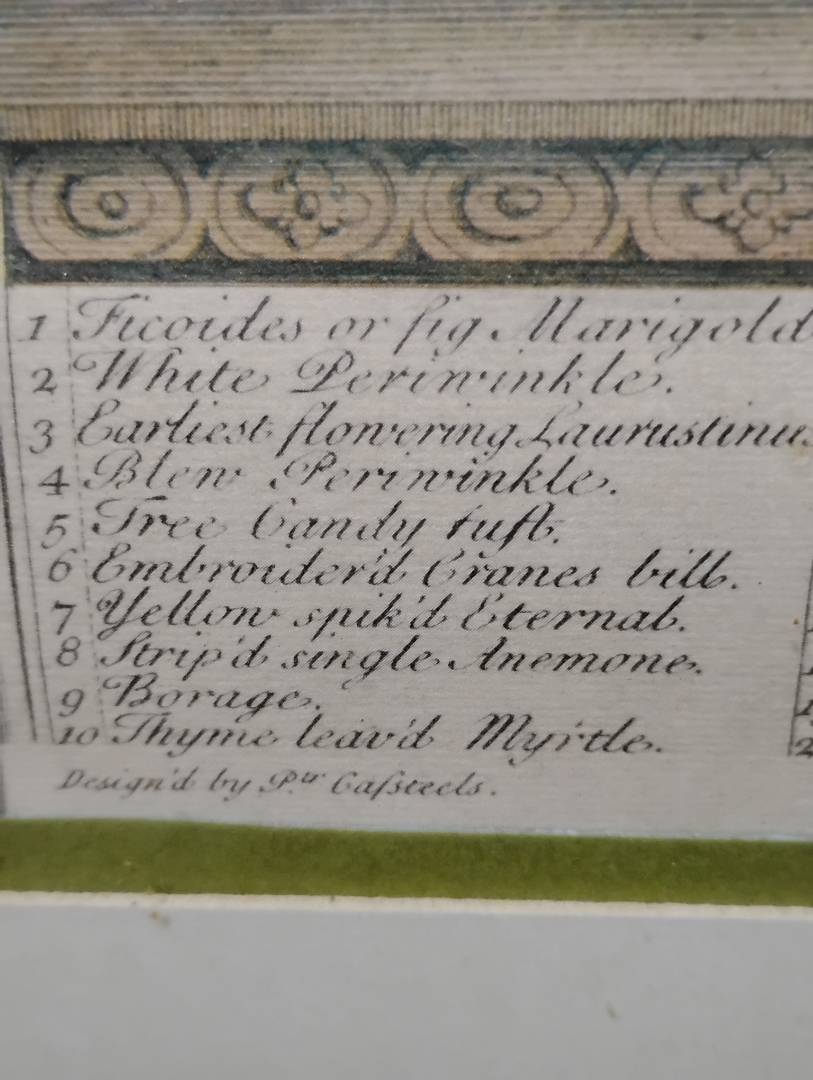 1 Ficoides or fig Marigold
2 White Periwinkle.
3 Earliest flowering Laurustinus
4 Blew Periwinkle.
5 Tree Candy tuft.
6 Embroider'd Cranes bill.
7 Yellow spik'd Eternal.
8 Strip'd single Anemone.
9 Borage.
10 Thyme leav'd Myrtle.
Design'd by P.tr Caſsteels.